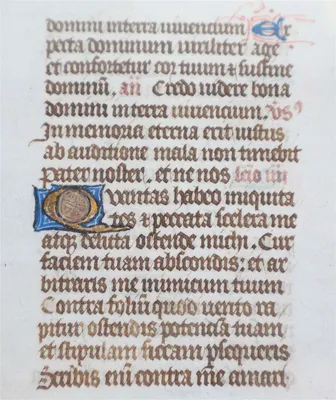 domini in terra viventium Ex
pecta dominum viriliter age
et confortetur cor tuum ⁊ sustine
dominū, añ Credo videre bona
domini in terra viventium. vs
In memoria eterna erit iustus
ab auditione mala non timebit
Pater noster. et ne nos lcio iiii
Quantas habeo iniquita
tes ⁊ peccata scelera me
atqȝ delicta ostende michi. Cur
faciem tuam abscondis: et ar
bitraris me inimicum tuum
Contra folium quod vento ra
pitur ostendis potenciā tuam
et stipulam siccam ꝑsequeris
Scribis enī contra me amari